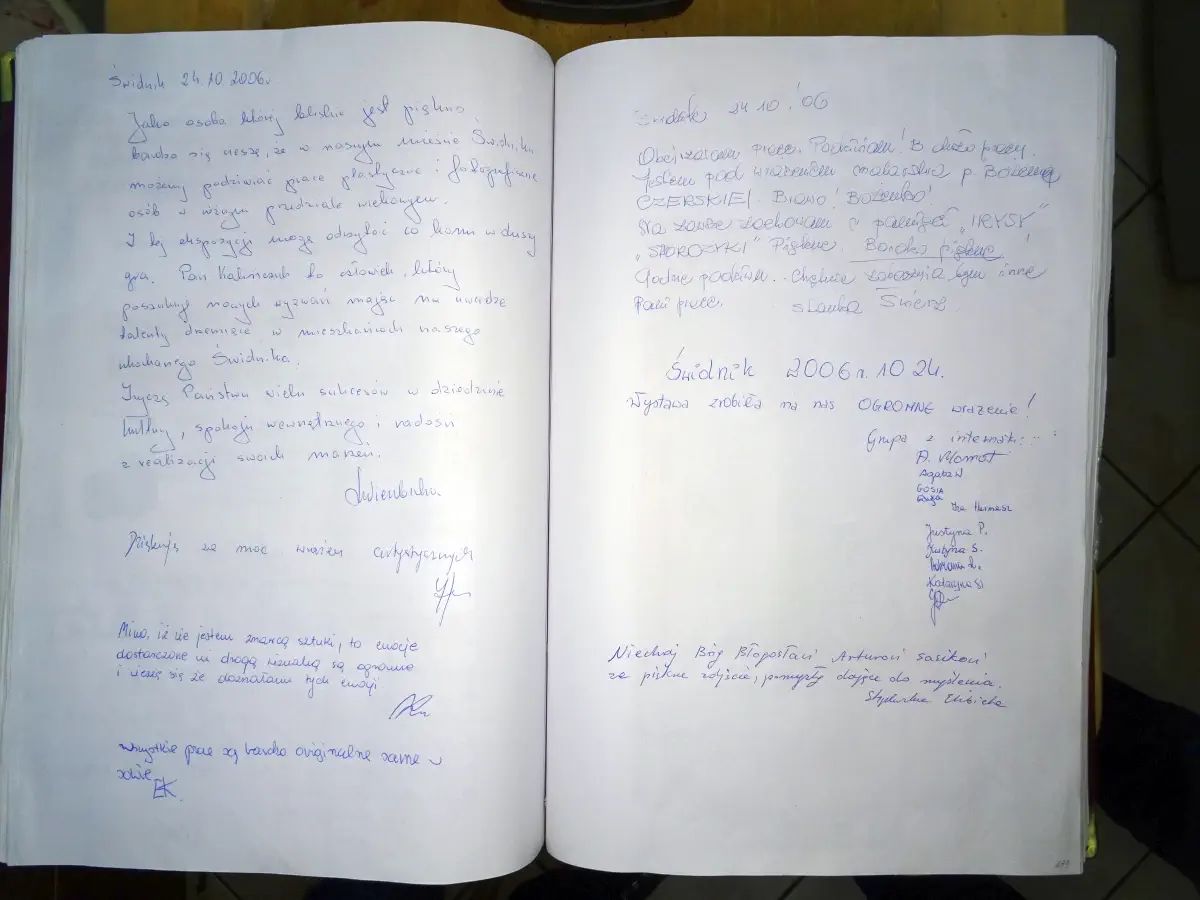 Świdnik 24.10.2006r
Jako osoba której bliskie jest piękno
bardzo się cieszę, że w naszym mieście Świdniku
możemy podziwiać prace plastyczne i fotograficzne
osób w różnym przedziale wiekowym.
Z tej ekspozycji mogę odczytać co komu w duszy
gra. Pan Kalinczuk to człowiek, który
poszukuje nowych wyzwań mając na uwadze
talenty drzemiące w mieszkańcach naszego
ukochanego Świdnika.
Życzę Państwu wielu sukcesów w dziedzinie
kultury, spokoju wewnętrznego i radości
z realizacji swoich marzeń.
Dziękuję za moc wrażeń artystycznych
Mimo, iż nie jestem znawcą sztuki, to emocje
dostarczone mi drogą wizualną są ogromne
i cieszę się że doznałam tych emocji.
Wszystkie prace są bardzo oryginalne same w
sobie
EK.
Świdnik 24 10. '06
Obejrzałam prace. Podziwiam! B. dużo pracy.
Jestem pod wrażeniem malarstwa p. Bożeny
CZERSKIEJ. Brawo! Bożenko!
Na zawsze zachowam w pamięci „IRYSY"
Piękne. Bardzo piękne!
Godne podziwu. Chętnie zobaczyłabym inne
Pani prace.
Świdnik 2006r. 10 24.
Wystawa zrobiła na nas OGROMNE wrażenie!
Grupa z internatu:
A. Momot
Agata W
GOSIA
Iza Hermasz
Justyna P.
Justyna S.
Katarzyna S
Niechaj Bóg Błogosławi Arturowi
za piękne zdjęcie, pomysły dające do myślenia.
179